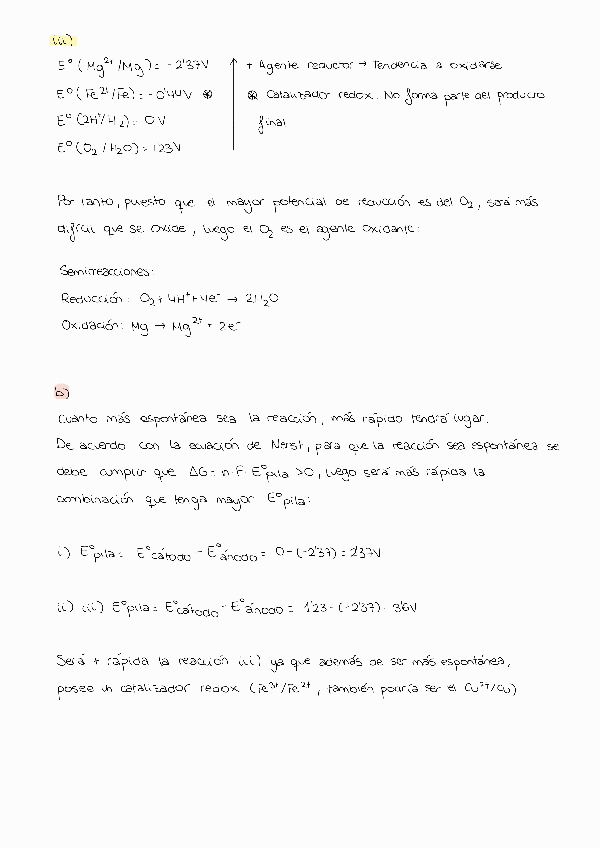 iii)
E° (Mg²⁺/Mg) = -2'37V + Agente reductor → Tendencia a oxidarse
E° (Fe²⁺/Fe) = -0'44V ⊛ ⊛ Catalizador redox. No forma parte del producto
E° (2H⁺/H₂) = 0V final
E° (O₂/H₂O) = 1'23V
Por tanto, puesto que el mayor potencial de reducción es del O₂, será más
difícil que se oxide, luego el O₂ es el agente oxidante:
Semirreacciones:
Reducción: O₂ + 4H⁺ + 4e⁻ → 2H₂O
Oxidación: Mg → Mg²⁺ + 2e⁻
b)
Cuanto más espontánea sea la reacción, más rápido tendrá lugar.
De acuerdo con la ecuación de Nerst, para que la reacción sea espontánea se
debe cumplir que ΔG = n·F·E°pila >0, luego será más rápida la
combinación que tenga mayor E°pila:
i) E°pila = E°cátodo - E°ánodo = 0 - (-2'37) = 2'37V
ii) iii) E°pila = E°cátodo - E°ánodo = 1'23 - (-2'37) = 3'6V
Será + rápida la reacción iii) ya que además de ser más espontánea,
posee un catalizador redox (Fe³⁺/Fe²⁺, también podría ser el Cu²⁺/Cu)